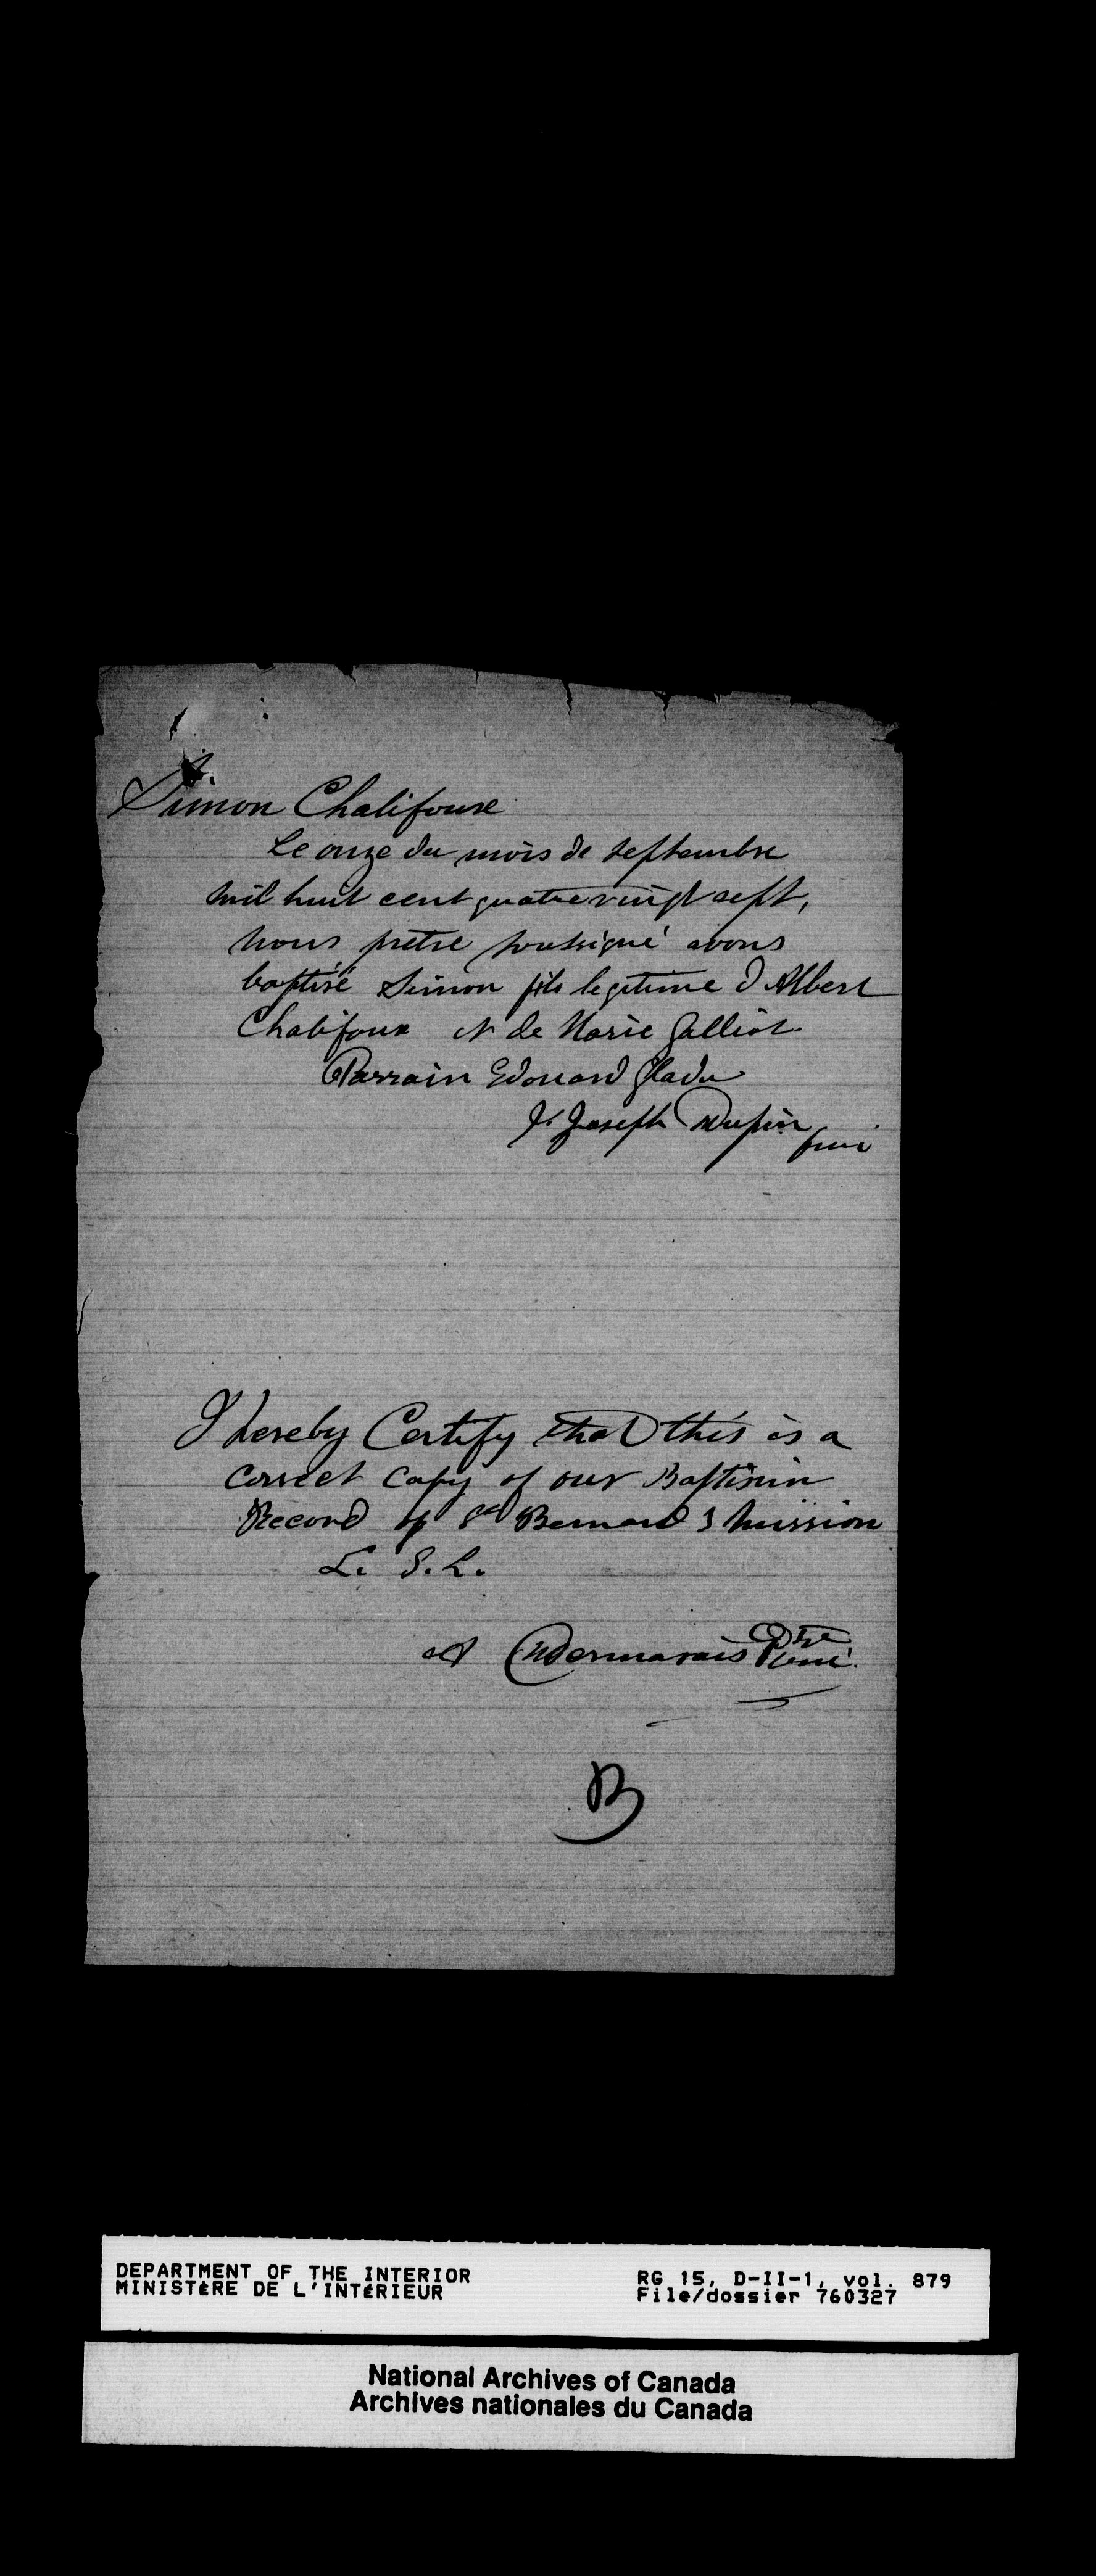 Simon Chalifoux
Le onze du mois de septembre
mil huit cent quatre vingt sept,
nous prêtre soussigné avons
baptisé Simon fils legitime d'Albert
Chalifoux et de Marie Galliot
Parrain Edouard Gladu
J. Joseph Dupin
I hereby Certify that this is a
correct Copy of our Baptisim
Record of St Bernard's Mission
L. S. L.
A Desmarais Ptre
B
DEPARTMENT OF THE INTERIOR
MINISTÈRE DE L'INTÉRIEUR
RG 15, D-II-1, vol. 879
File/dossier 760327
National Archives of Canada
Archives nationales du Canada